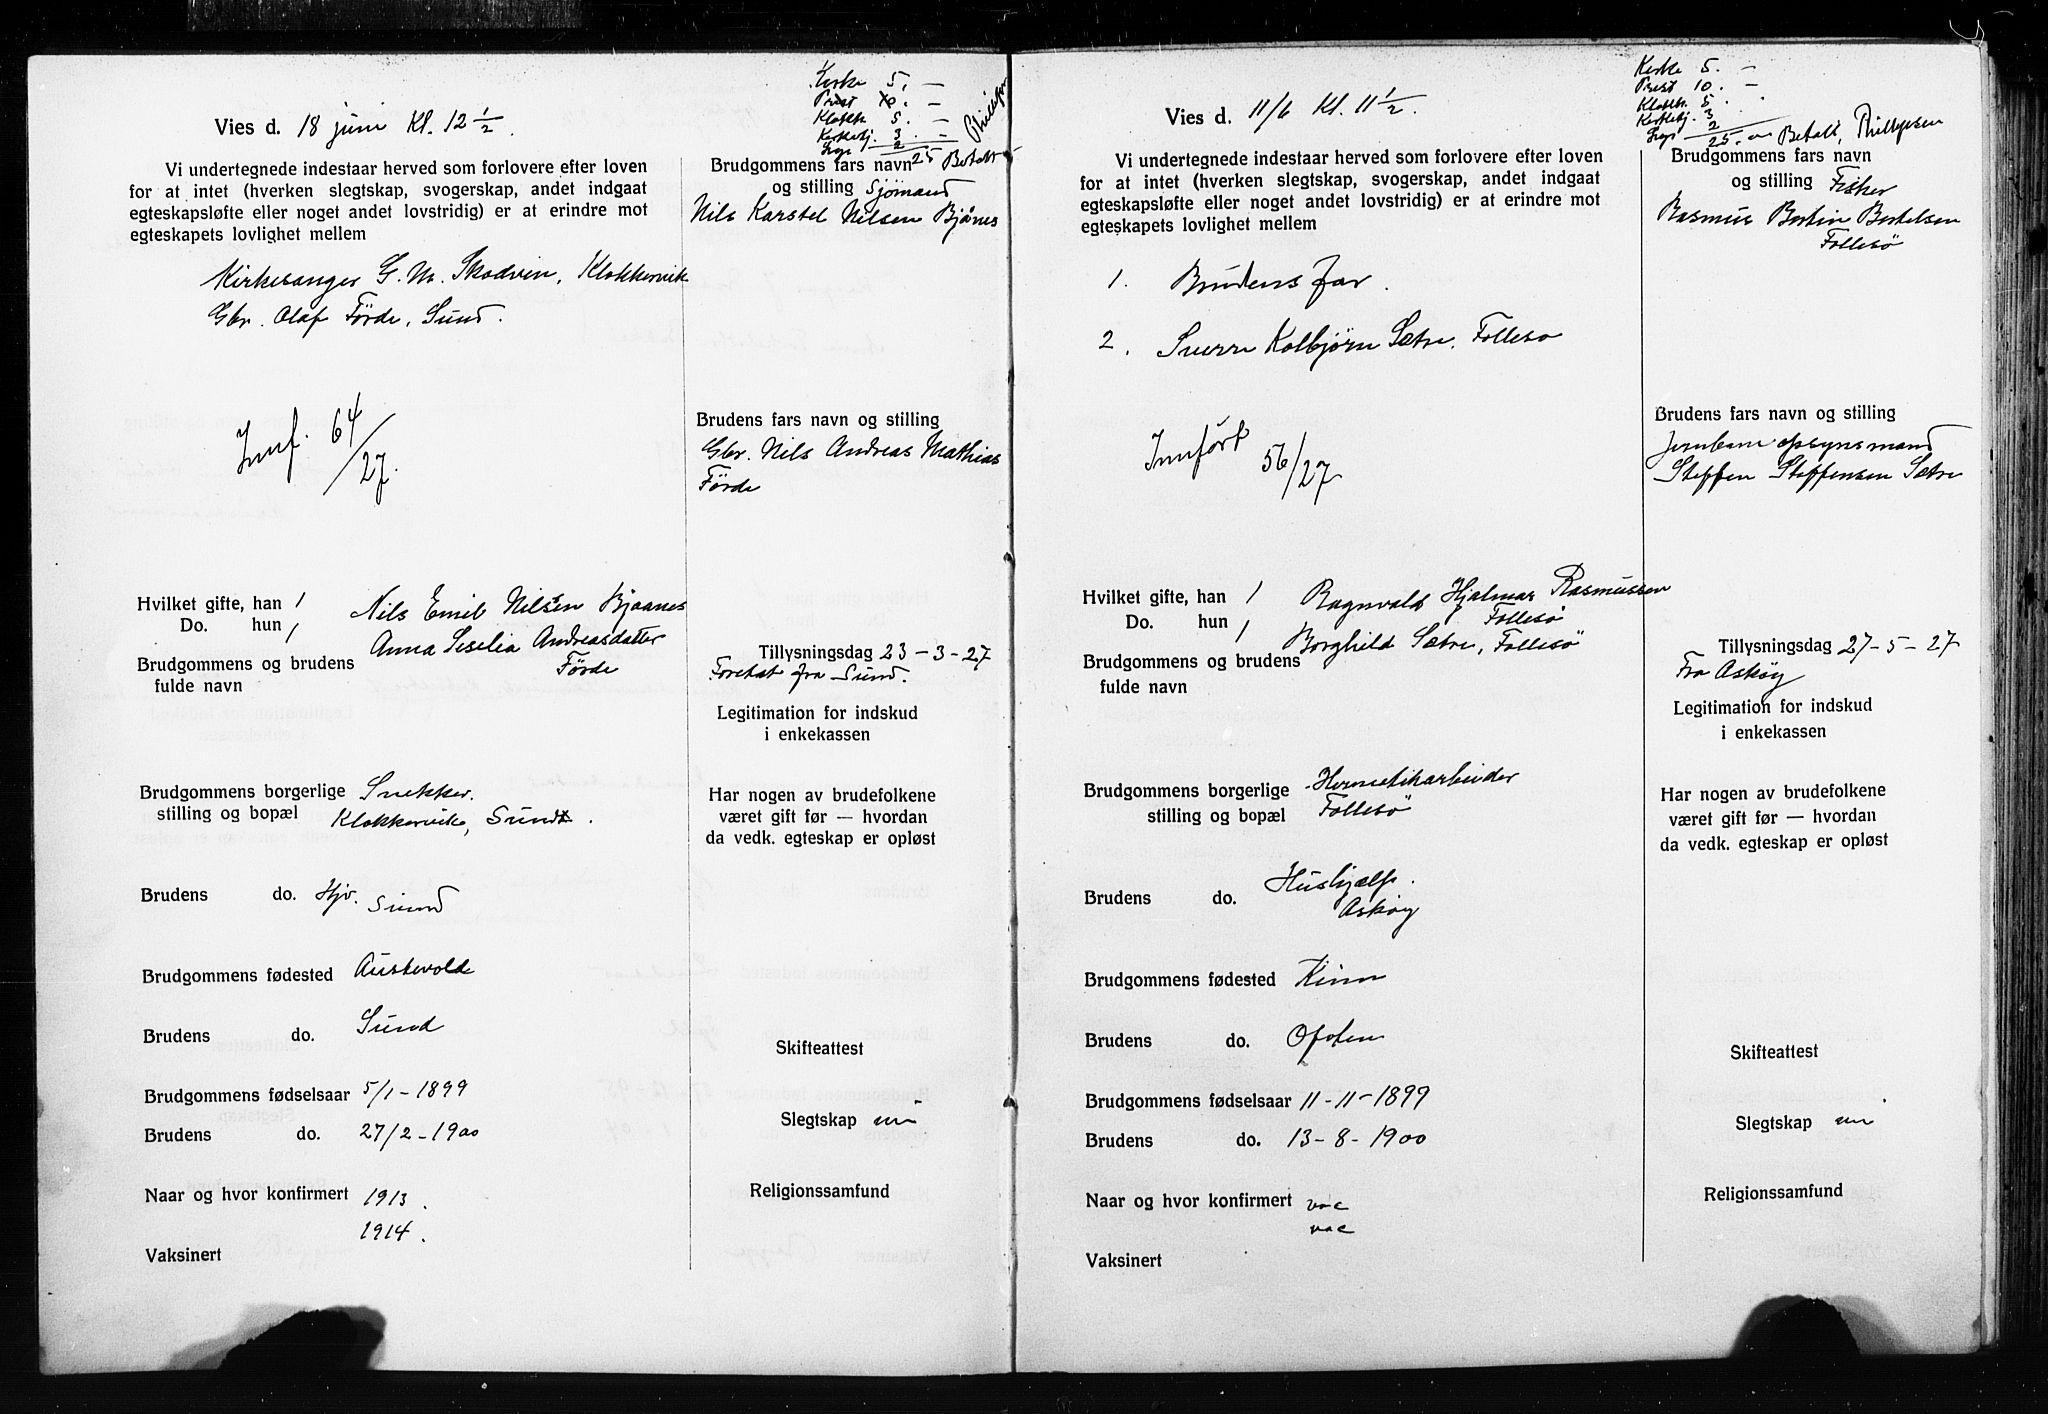 Kirke 5. —
Prest 10. —
Klokk. 5. —
Kirketj. 3. —
2
25 Betalt
Vies d. 18 juni Kl. 12 1/2.
Vi undertegnede indestaar herved som forlovere efter loven
for at intet (hverken slegtskap, svogerskap, andet indgaat
egteskapsløfte eller noget andet lovstridig) er at erindre mot
egteskapets lovlighet mellem
Kirkesanger G. M. Skodvin, Klokkervik
Gbr. Olaf Förde, Sund.
Innf. 64/27.
Brudgommens fars navn
og stilling Sjömand
Nils Karstel Nilsen Bjånes
Brudens fars navn og stilling
Gbr. Nils Andreas Mathias
Förde
Hvilket gifte, han 1
Do. hun 1
Brudgommens og brudens
fulde navn
Nils Emil Nilsen Bjaanes
Anna Seselia Andreasdatter
Förde
Tillysningsdag 23-3-27
Foretat fra Sund.
Legitimation for indskud
i enkekassen
Brudgommens borgerlige
stilling og bopæl
Snekker.
Klokkervik, Sund.
Har nogen av brudefolkene
været gift før — hvordan
da vedk. egteskap er opløst
Brudens do. Hjv. Sund
Brudgommens fødested Austevold
Brudens do. Sund
Skifteattest
Brudgommens fødselsaar 5/1-1899
Brudens do. 27/2-1900
Slegtskap nei
Naar og hvor konfirmert 1913.
1914.
Religionssamfund
Vaksinert
Kirke 5. —
Prest 10. —
Klokk. 5.
Kirketj. 3
2
25. — Betalt, Phillipsen
Vies d. 11/6 Kl. 11 1/2.
Vi undertegnede indestaar herved som forlovere efter loven
for at intet (hverken slegtskap, svogerskap, andet indgaat
egteskapsløfte eller noget andet lovstridig) er at erindre mot
egteskapets lovlighet mellem
1. Brudens far.
2. Sverre Kolbjørn Sætre, Follesø
Innført 56/27
Brudgommens fars navn
og stilling Fisker
Rasmus Bertin Bertelsen
Follesø
Brudens fars navn og stilling
Jernbaneopsynsmand
Steffen Steffensen Sætre
Hvilket gifte, han 1
Do. hun 1
Brudgommens og brudens
fulde navn
Ragnvald Hjalmar Rasmussen
Follesø
Borghild Sætre, Follesø
Tillysningsdag 27-5-27
Fra Askøy
Legitimation for indskud
i enkekassen
Brudgommens borgerlige
stilling og bopæl
Hermetikarbeider
Follesø
Har nogen av brudefolkene
været gift før — hvordan
da vedk. egteskap er opløst
Brudens do. Hushjælp.
Askøy
Brudgommens fødested Kinn
Brudens do. Ofoten
Skifteattest
Brudgommens fødselsaar 11-11-1899
Brudens do. 13-8-1900
Slegtskap nei
Naar og hvor konfirmert vac
vac
Religionssamfund
Vaksinert